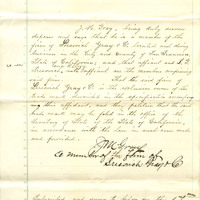 J. M. Gray, being duly sworn
deposes and says that he is a member of the
firm of Gray & Co. located and doing
business in the City and County of San Francisco
State of California, and that affiant and J. P.
are the members composing
said firm. That the said firm of
Gray & Co is the exclusive owner of the
trade mark described in the specification accompanying
this affidavit, and they petition that the said
trade mark may be filed in the office of the
Secretary of State of the State of California,
in accordance with the law in such case made
and provided.
J M Gray
A member of the firm of
Gray & Co
Subscribed and sworn to before me this